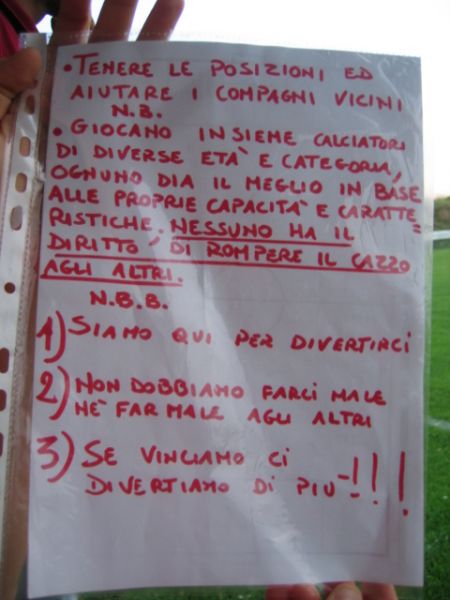 • TENERE LE POSIZIONI ED
AIUTARE I COMPAGNI VICINI
N.B.
• GIOCANO INSIEME CALCIATORI
DI DIVERSE ETA' E CATEGORIA,
OGNUNO DIA IL MEGLIO IN BASE
ALLE PROPRIE CAPACITA' E CARATTE=
RISTICHE. NESSUNO HA IL
DIRITTO, DI ROMPERE IL CAZZO
AGLI ALTRI.
N.B.B.
1) SIAMO QUI PER DIVERTIRCI
2) NON DOBBIAMO FARCI MALE
NE' FAR MALE AGLI ALTRI
3) SE VINCIAMO CI
DIVERTIAMO DI PIU'!!!